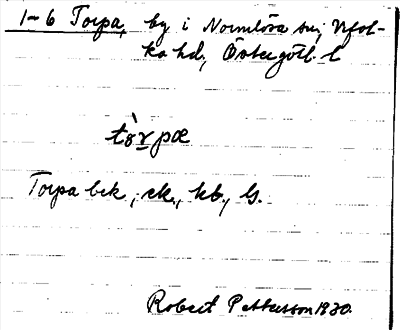 1–6 Torpa, by i Normlösa sn, Vifol-
ka hd., Östergötl. l
tòrpæ
Torpa bek, ek., kb., G.
Robert Pettersson 1930.